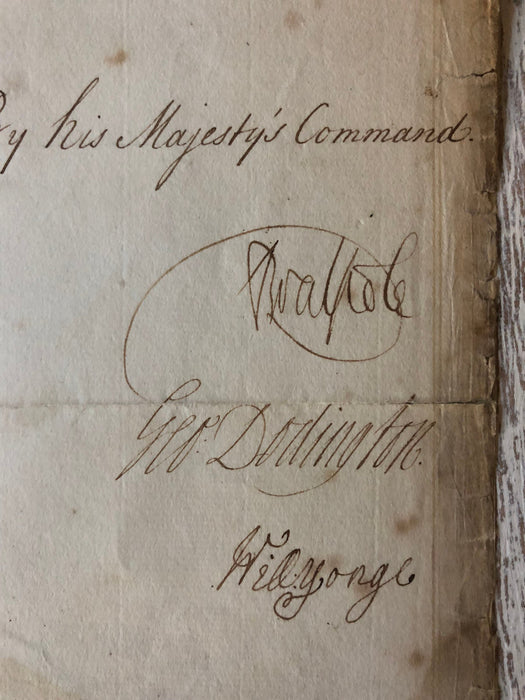 By his Majesty's Command.
RWalpole
Geo: Dodington.
Will: Yonge